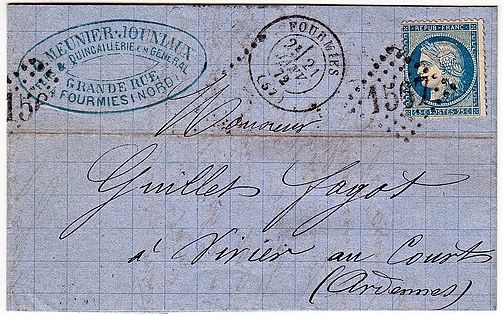 MEUNIER-JOUNIAUX
& QUINCAILLERIE EN GENERAL
GRANDE RUE
A FOURMIES (NORD)
FOURMIES
2E
21
JANV
72
(57)
REPUB. FRANC.
25 C POSTES 25 C
15
15
Monsieur
Guillet Fagot
à Vivier au Court
(Ardennes)